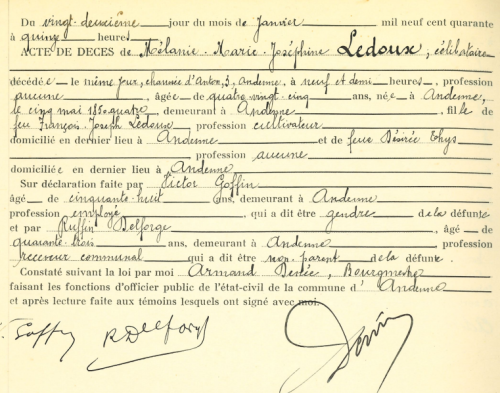 Du vingt-deuxième jour du mois de Janvier mil neuf cent quarante
à quinze heures
ACTE DE DECES de Mélanie-Marie-Joséphine Ledoux, célibataire
décédée le même jour, chaussée d'Anton, 3, Andenne, à neuf et demi heures, profession
aucune, âgée de quatre vingt-cinq ans, née à Andenne,
le cinq mai 1850quatre, demeurant à Andenne, fille de
feu François-Joseph Ledoux, profession cultivateur
domicilié en dernier lieu à Andenne et de feue Désirée Thys
profession aucune
domiciliée en dernier lieu à Andenne
Sur déclaration faite par Victor Goffin
âgé de cinquante-huit ans, demeurant à Andenne
profession employé, qui a dit être gendre de la défunte
et par Ruffin Delforge, âgé de
quarante-trois ans, demeurant à Andenne profession
receveur communal qui a dit être non parent de la défunte.
Constaté suivant la loi par moi Armand, Bourgmestre
faisant les fonctions d'officier public de l'état-civil de la commune d'Andenne
et après lecture faite aux témoins lesquels ont signé avec moi.
Goffin R Delforge